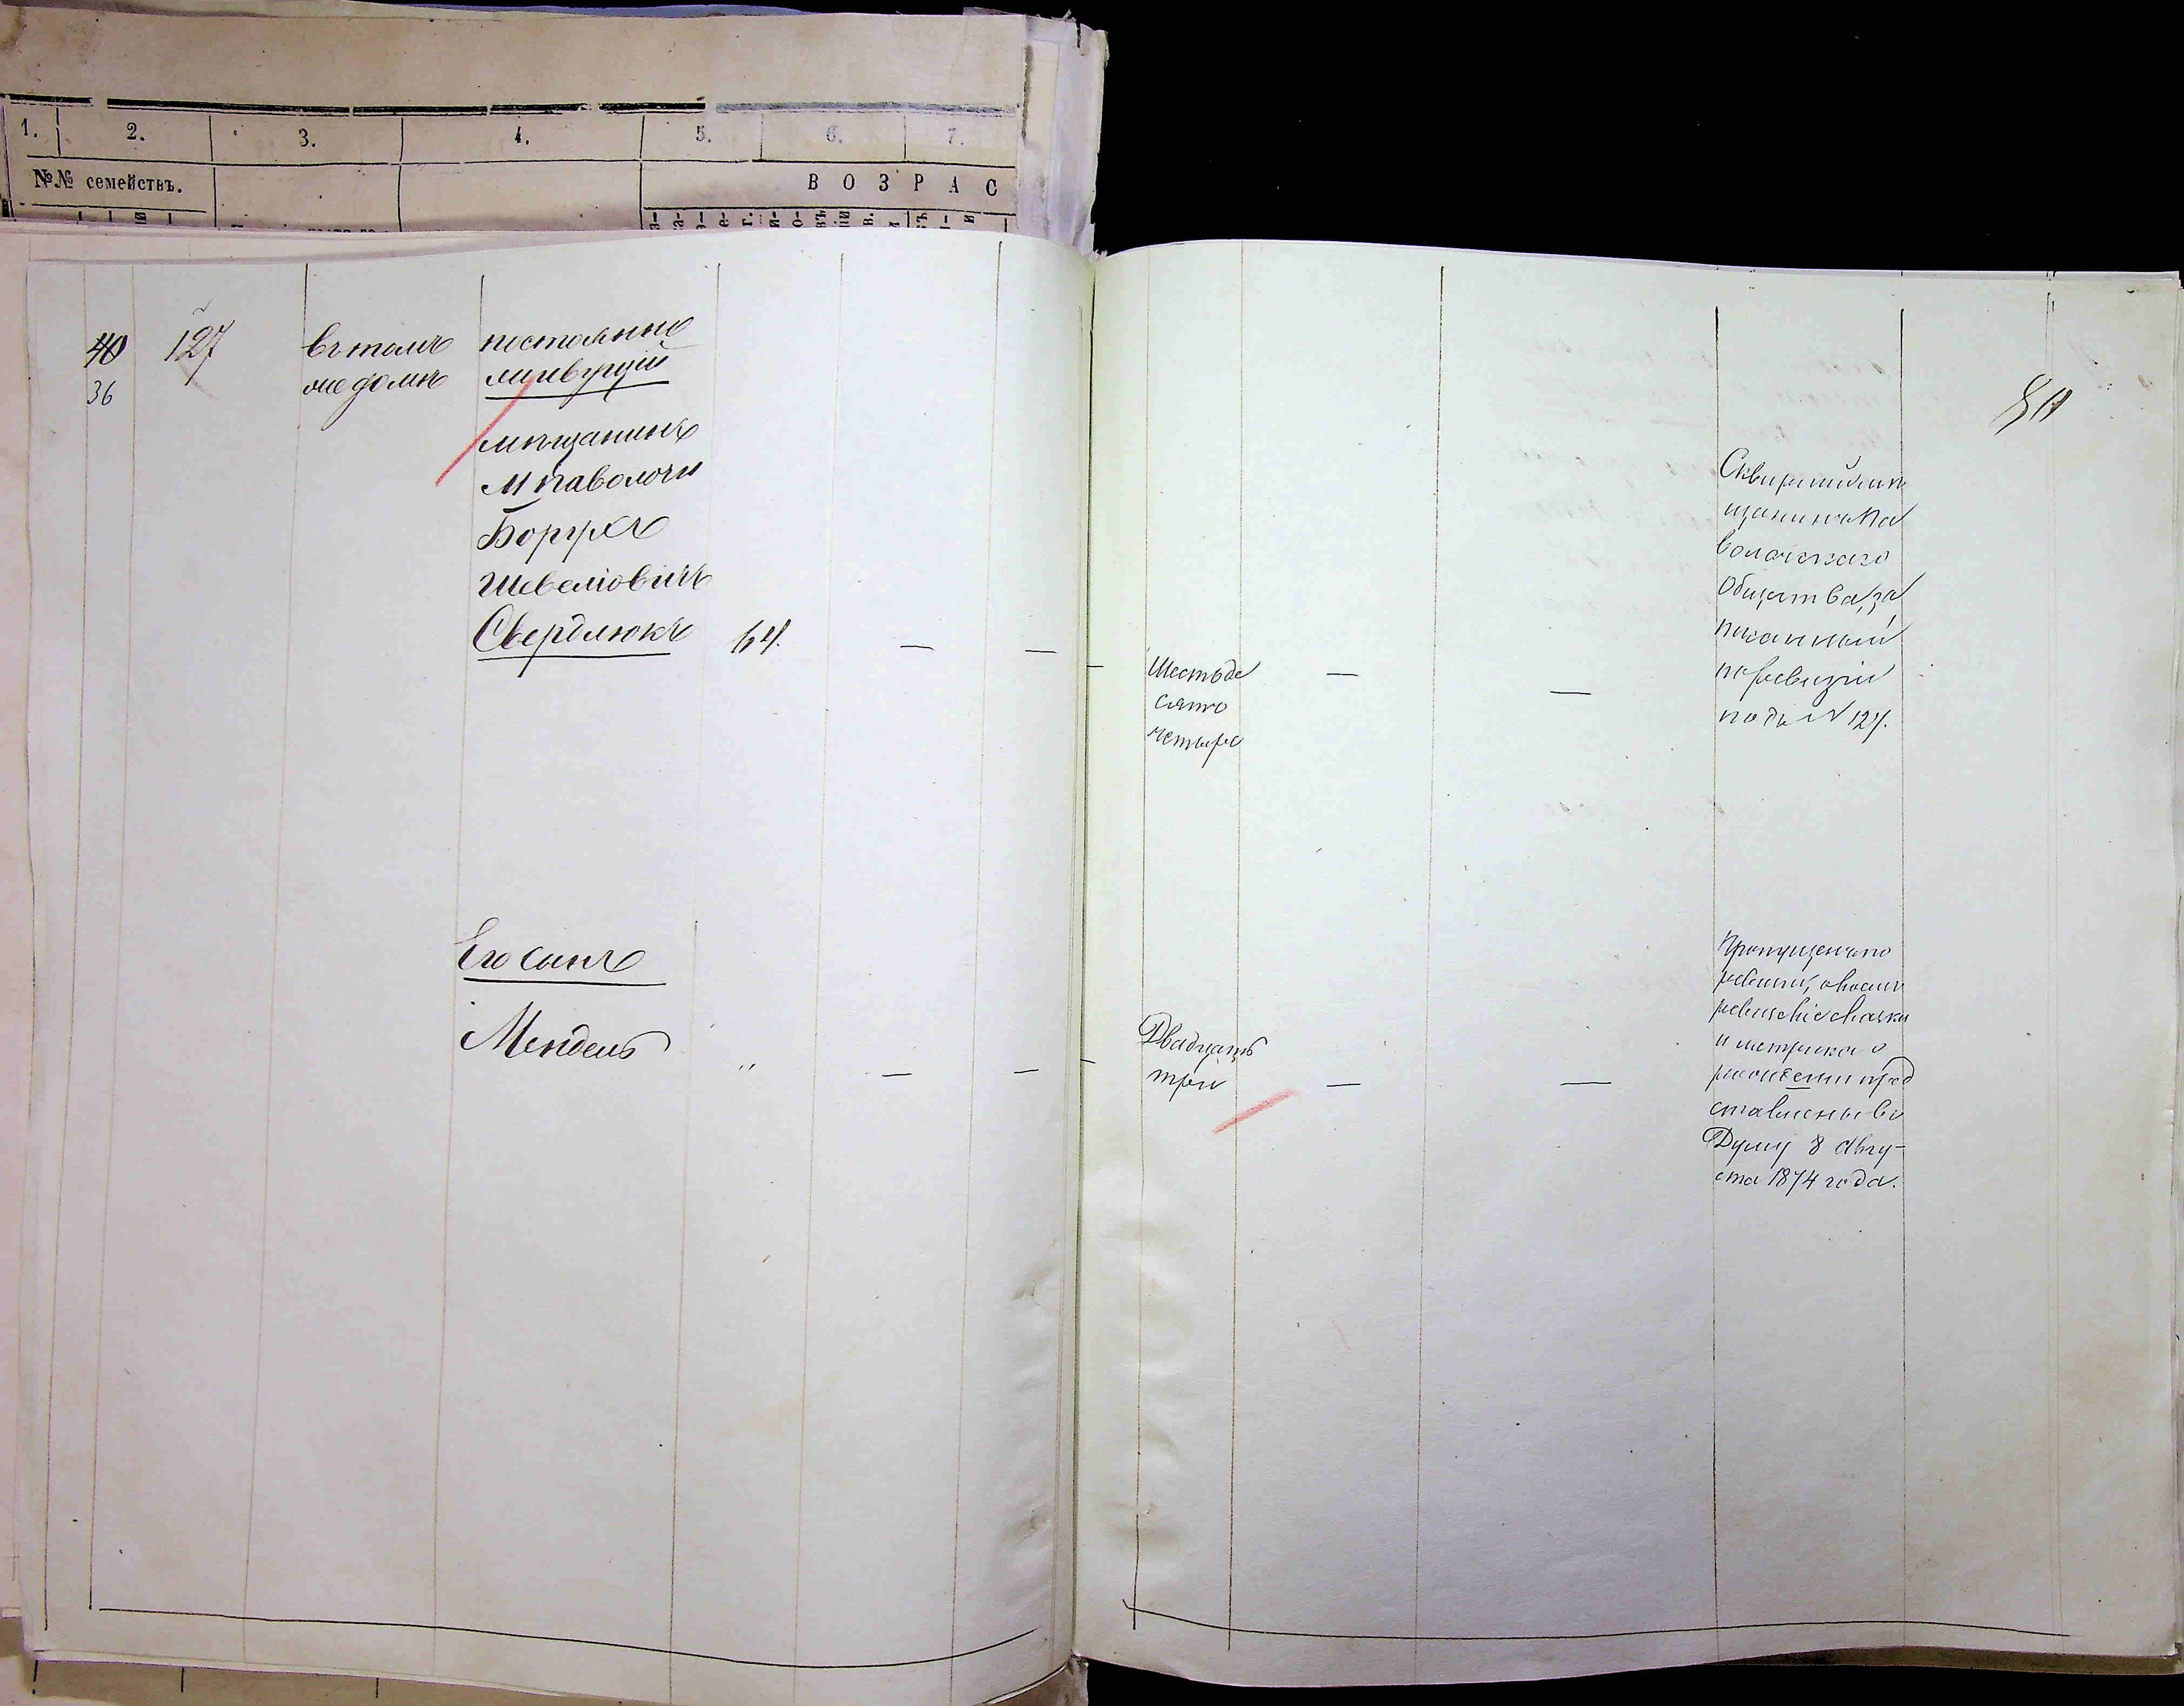 1. 2. 3. 4. 5. 6. 7.
№№ семействъ.
ВОЗРАС
40 127 въ томъ постоянно
36 же домѣ живущій
мѣщанинъ
м Паволочи
Борухъ
Шевелювичъ
Свердлюкъ 64.
Шестьде
сятъ
четыре
Сквирскій мѣ
щанинъ Па
волочскаго
Общества, за
писанный
по ревизіи
подъ N 127.
Его сынъ
Мендель "
Двадцать
три
Пропущенъ по
ревизіи, о коемъ
ревизскіе сказки
и метрика о
рожденіи пред
ставлены въ
Думу 8 Авгу-
ста 1874 года.